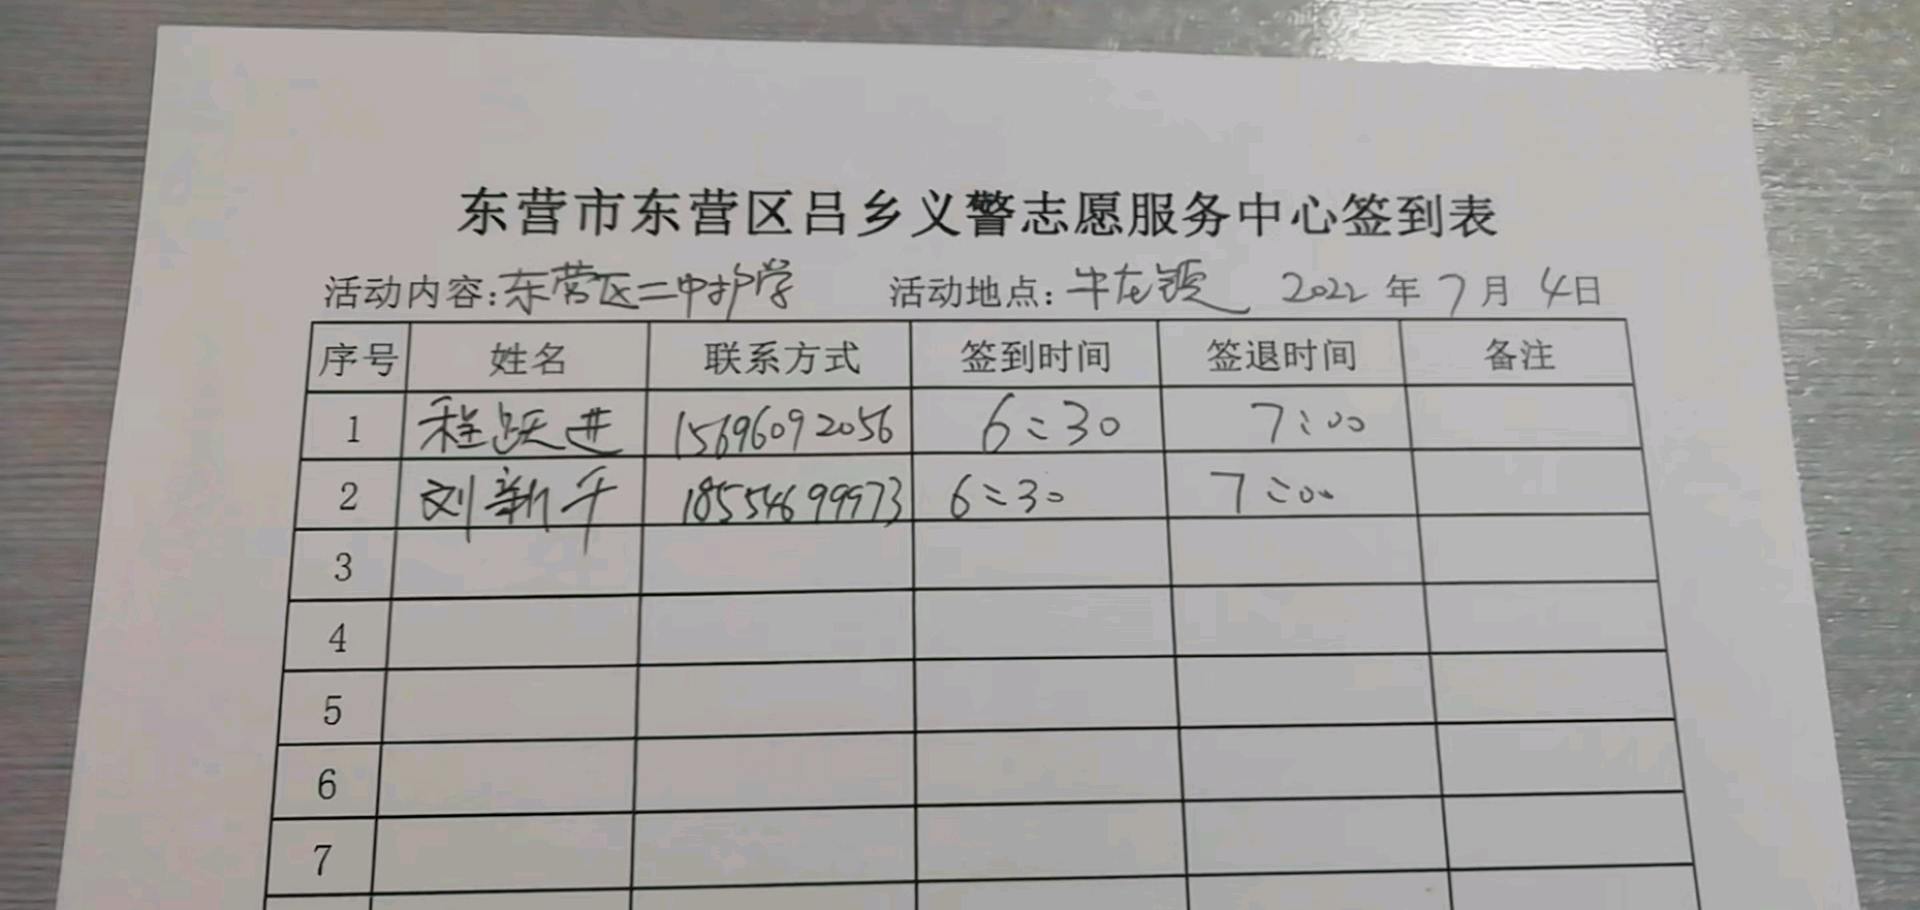 东营市东营区吕乡义警志愿服务中心签到表
活动内容:东营区二中护学 活动地点:牛庄镇 2022年7月4日
序号 姓名 联系方式 签到时间 签退时间 备注
1 程跃进 15696092056 6:30 7:00
2 刘新千 18554699973 6:30 7:00
3
4
5
6
7